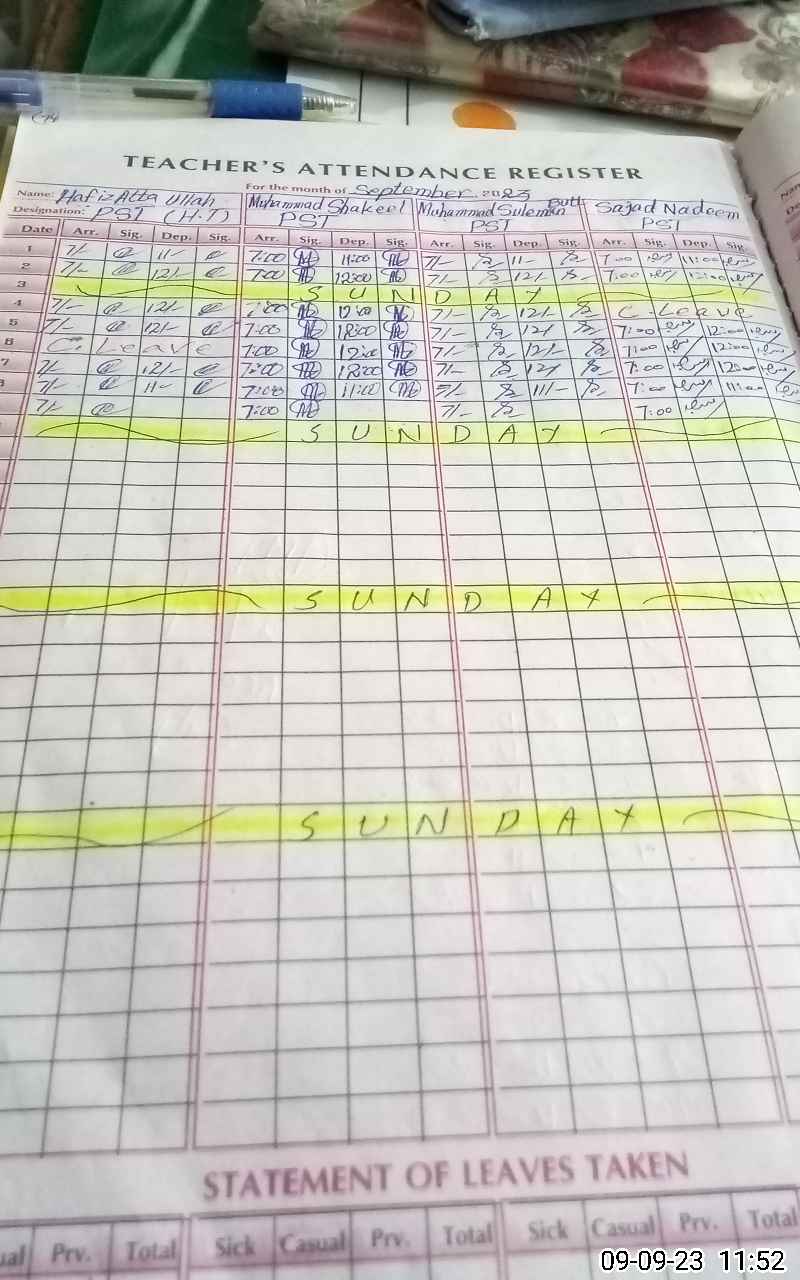 TEACHER'S ATTENDANCE REGISTER
For the month of September 2023
Name: Hafiz Atta Ullah Muhammad Shakeel Muhammad Suleman Butt Sajad Nadeem
Designation: PST (H.T) PST PST PST
Date Arr. Sig. Dep. Sig. Arr. Sig. Dep. Sig. Arr. Sig. Dep. Sig. Arr. Sig. Dep. Sig.
1 7/- 11/- 7:00 11:00 7/- 11/- 7:00 11:00
2 7/- 12/- 7:00 12:00 7/- 12/- 7:00 12:00
3 SUNDAY
4 7/- 12/- 7:00 12:00 7/- 12/- C. Leave
5 7/- 12/- 7:00 12:00 7/- 12/- 7:00 12:00
6 C. Leave 7:00 12:00 7/- 12/- 7:00 12:00
7 7/- 12/- 7:00 12:00 7/- 12/- 7:00 12:00
8 7/- 11/- 7:00 11:00 11/- 7:00 11:00
7/- 7:00 7/- 7:00
SUNDAY
SUNDAY
SUNDAY
STATEMENT OF LEAVES TAKEN
Prv. Total Sick Casual Prv. Total Sick Casual Prv. Total
09-09-23 11:52